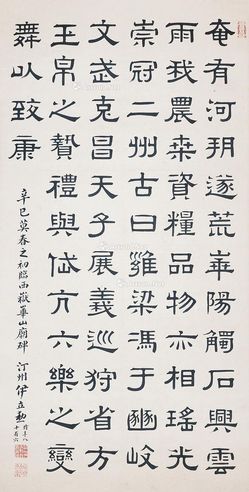 奄有河朔遂荒華陽觸石興雲
雨我農桑資糧品物亦相瑤光
崇冠二州古曰雝梁馮于豳岐
文武克昌天子展義巡狩省方
玉帛之贄禮與岱亢六樂之變
舞以致康
辛巳莫春之初臨西嶽華山廟碑 汀州伊立勳
時年八十有六